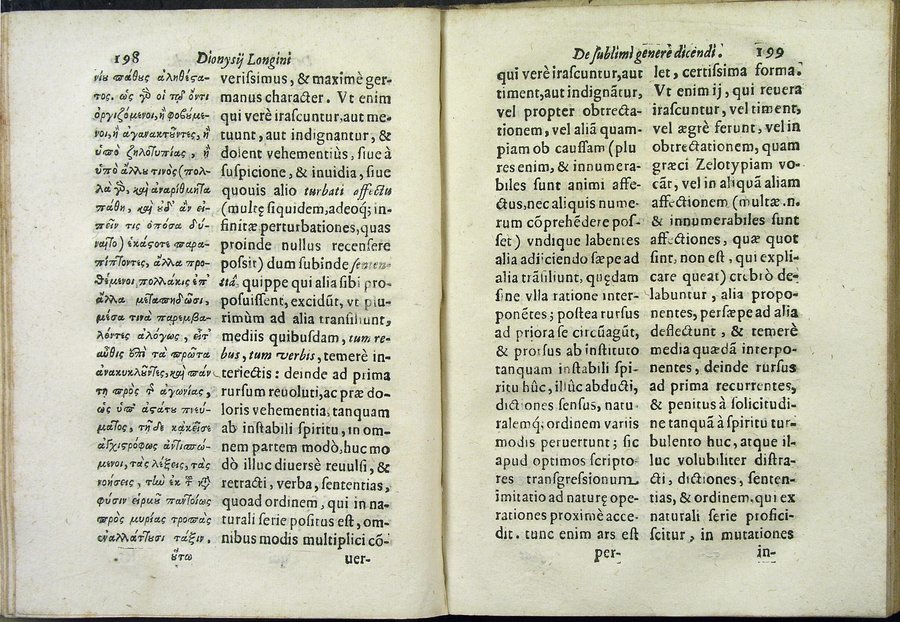 198
Dionysij Longini
νίȣ πάθȣς ἀληθέςα-
τος. ὡς γδ οἱ τῷ ὄντι
ὀργιζόμενοι, ἢ φοβȣμε-
νοι, ἢ ἀγανακτȣ͂ντες, ἢ
ὑπὸ ζηλοτυπίας, ἢ
ὑπὸ ἄλλȣ τινὸς (πολ-
λὰ γδ, καὶ ἀναρίθμητα
πάθη, καὶ ȣ̓δ' ἂν εἰ-
πεῖν τις ὁπόσα δύ-
ναιτο) ἑκάςοτε παρα-
πίπτοντες, ἄλλα προ-
θέμενοι πολλάκις ἐπ'
ἄλλα μεταπηδῶσι,
μέσα τινὰ παρεμβα-
λόντες ἀλόγως, εἶτ'
αὖθις ἐπὶ τὰ πρῶτα
ἀνακυκλȣ͂ντες, καὶ πάν
τη πρὸς τ̃ ἀγωνίας,
ὡς ὑπ' ἀςάτȣ πνεύ-
ματος, τῇδε κἀκεῖσε
ἀγχιςρόφως ἀντισπώ-
μενοι, τὰς λέξεις, τὰς
νοήσεις, τὴν ἐκ τ̃ κτ̃
φύσιν εἱρμȣ͂ παντοίως
πρὸς μυρίας τροπὰς
ἐναλλάττȣσι τάξιν.
ȣ̔́τω
verissimus, & maximè ger-
manus character. Vt enim
qui verè irascuntur, aut me-
tuunt, aut indignantur, &
dolent vehementiùs, siue à
suspicione, & inuidia, siue
quouis alio turbati affectu
(multę siquidem, adeoq; in-
finitæ perturbationes, quas
proinde nullus recensere
possit) dum subinde senten-
tiā, quippe qui alia sibi pro-
posuissent, excidūt, vt plu-
rimùm ad alia transiliunt,
mediis quibusdam, tum re-
bus, tum verbis, temerè in-
teriectis: deinde ad prima
rursum reuoluti, ac præ do-
loris vehementia, tanquam
ab instabili spiritu, in om-
nem partem modò, huc mo
dò illuc diuersè reuulsi, &
retracti, verba, sententias,
quoad ordinem, qui in na-
turali serie positus est, om-
nibus modis multiplici cō-
uer-
De sublimi genere dicendi.
199
qui verè irascuntur, aut
timent, aut indignātur,
vel propter obtrecta-
tionem, vel aliā quam-
piam ob caussam (plu
res enim, & innumera-
biles sunt animi affe-
ctus, nec aliquis nume-
rum cōprehēdere pos-
set) vndique labentes
alia adiiciendo sæpe ad
alia trāsiliunt, quędam
sine vlla ratione inter-
ponētes; postea rursus
ad priora se circūagūt,
& prorsus ab instituto
tanquam instabili spi-
ritu hûc, illûc abducti,
dictiones sensus, natu
ralemq; ordinem variis
modis peruertunt; sic
apud optimos scripto
res transgressionum
imitatio ad naturę ope-
rationes proximè acce-
dit. tunc enim ars est
per-
let, certissima forma.
Vt enim ij, qui reuera
irascuntur, vel timent,
vel ægrè ferunt, vel in
obtrectationem, quam
græci Zelotypiam vo-
cāt, vel in aliquā aliam
affectionem (multæ.n.
& innumerabiles sunt
affectiones, quæ quot
sint, non est, qui expli-
care queat) crebrò de-
labuntur, alia propo-
nentes, persæpe ad alia
deflectunt, & temerè
media quædā interpo-
nentes, deinde rursus
ad prima recurrentes,
& penitùs à solicitudi-
ne tanquā à spiritu tur-
bulento huc, atque il-
luc volubiliter distra-
cti, dictiones, senten-
tias, & ordinem, qui ex
naturali serie profici-
scitur, in mutationes
in-